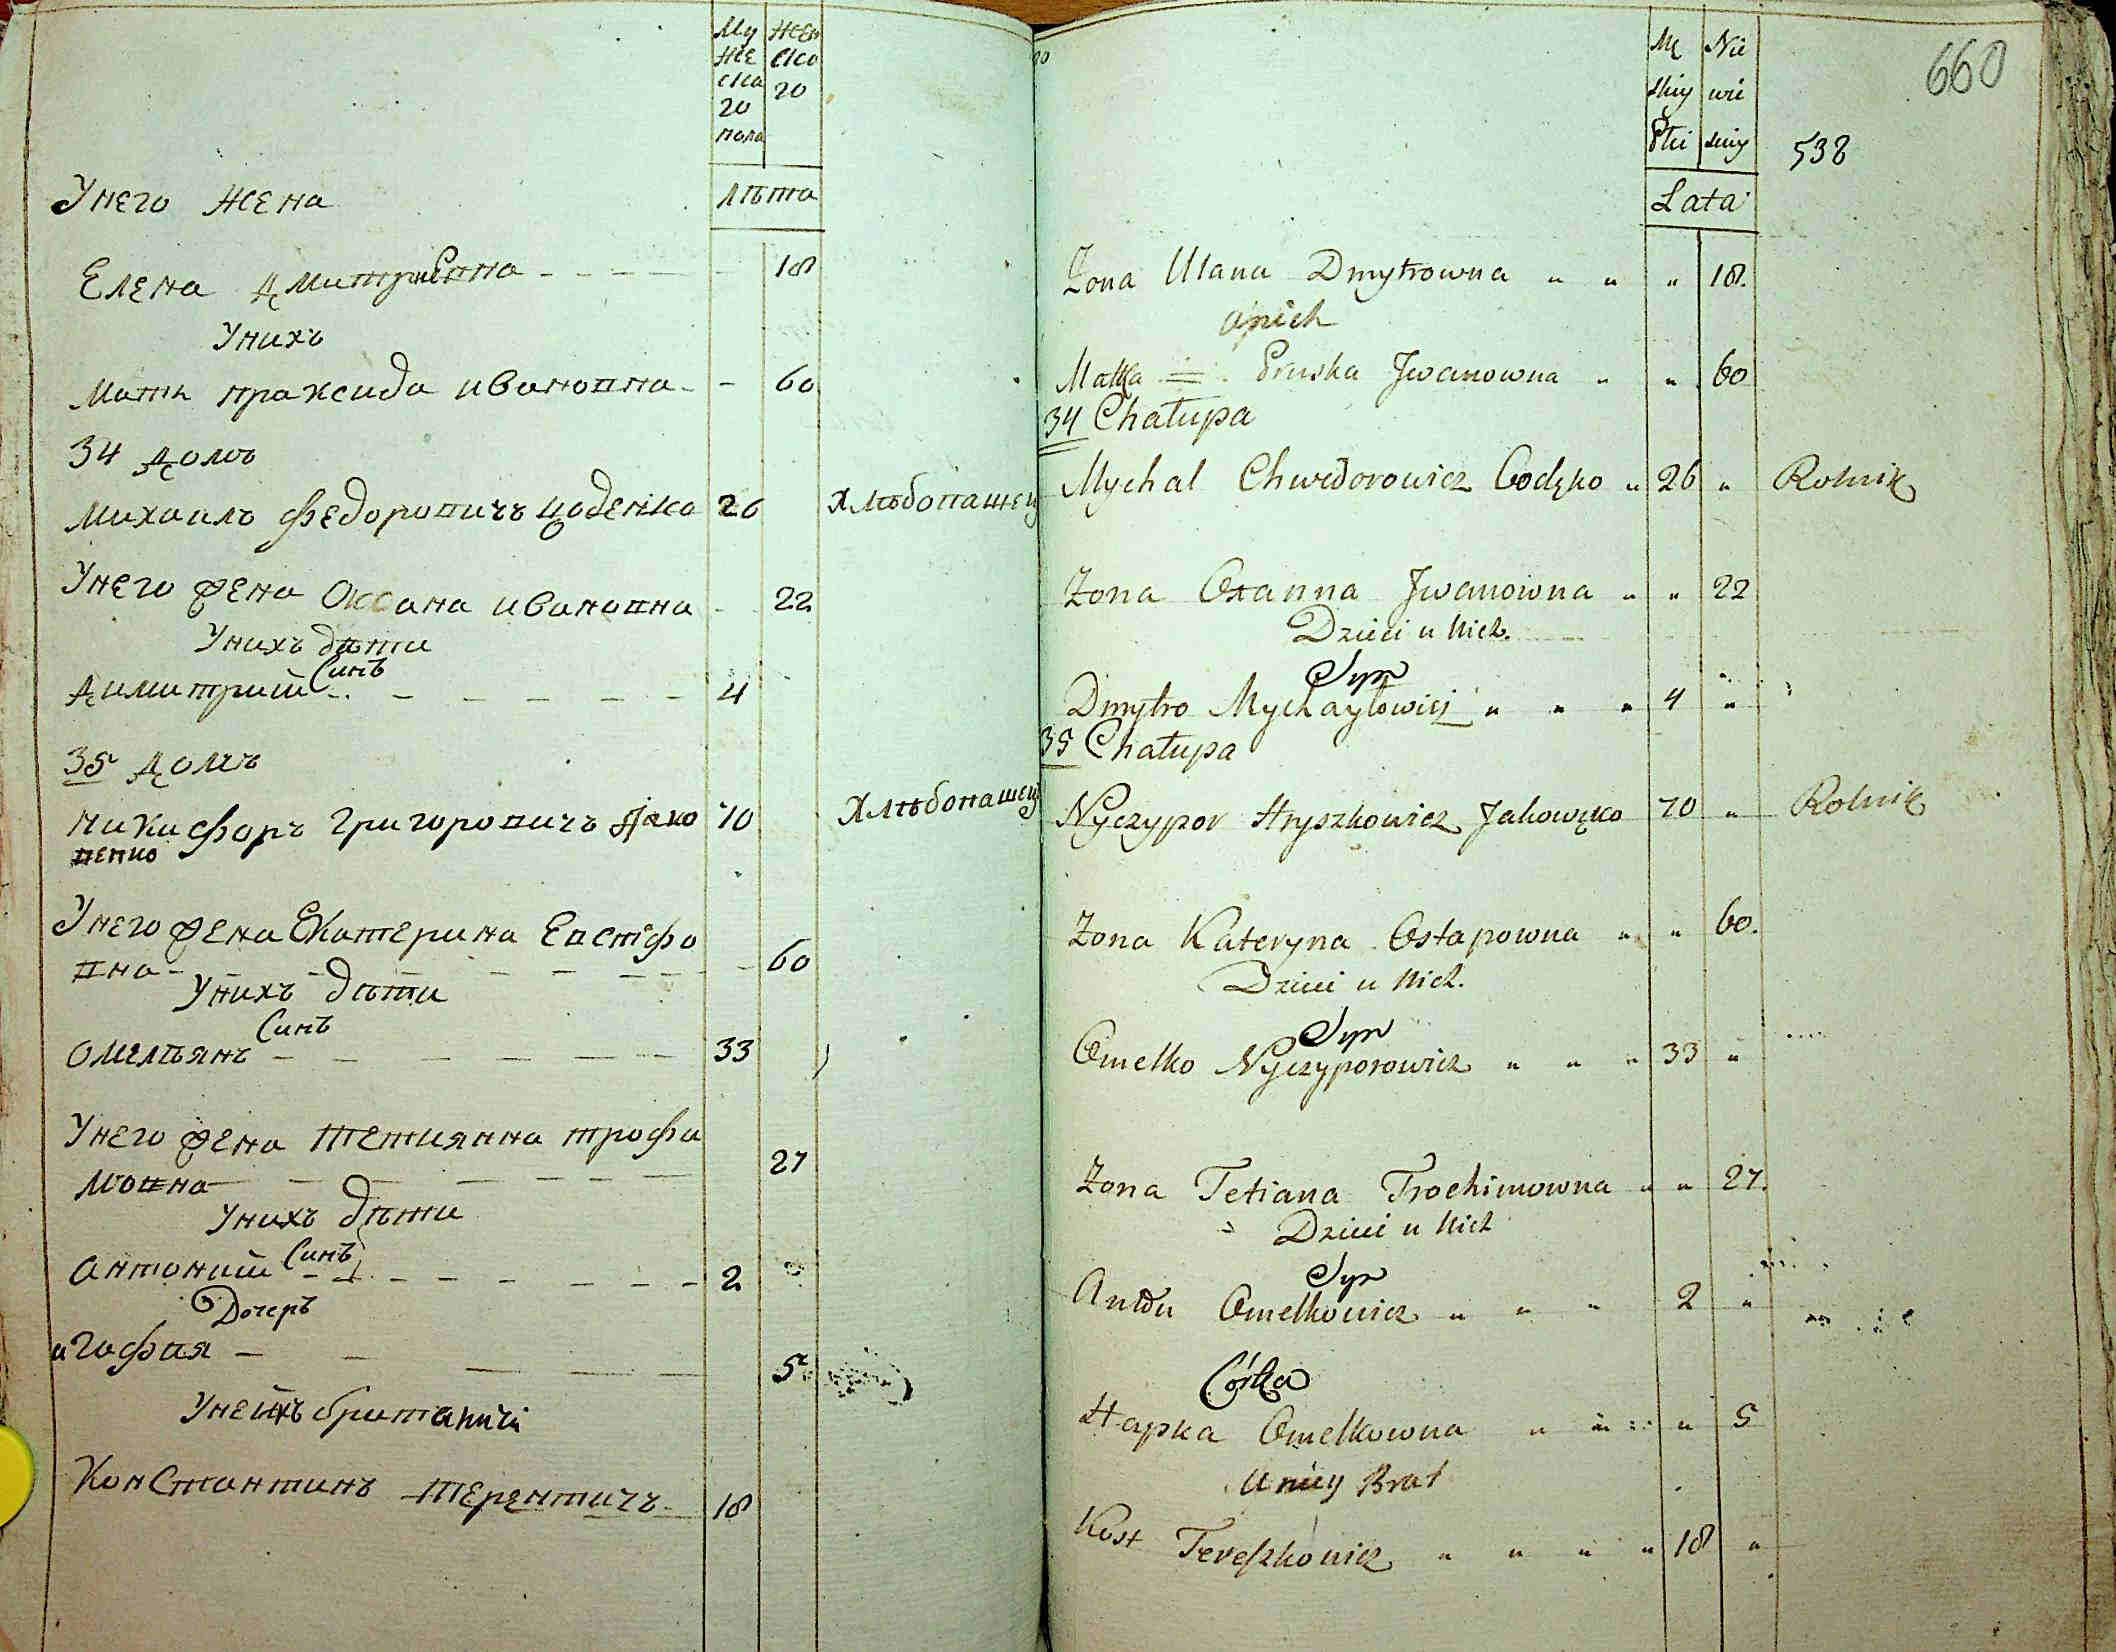 Му
же
ска
го
пола
Жен
ско
го
лѣта
Унего жена
Елена Димитріевна 18
Унихъ
Мать Праксида Ивановна 60
34 Домъ
Михаилъ Федоровичъ Цоденко 26 Хлѣбопашец
Унего жена Оксана Ивановна 22
Унихъ дѣти
Синъ
Димитрий 4
35 Домъ
Никифоръ Григоровичъ Яко 70 Хлѣбопашец
венко
Унего жена Екатерина Евстафо
вна 60
Унихъ дѣти
Синъ
Омельянъ 33
Унего жена Тетиянна Трофи
мовна 27
Унихъ дѣти
Синъ
Антоний 2
Дочеръ
Агафия 5
Константинъ Терентичъ 18
660
538
Mę
skiey
Płci
Nie
wie
sciey
Lata
Żona Ulana Dmytrowna " " " 18.
Matka Pruska Jwanowna " " 60
34 Chałupa
Mychal Chwedorowicz Codęko " 26 " Rolnik
Żona Oxanna Jwanowna " " 22
Dzieci u Nich.
Syn
Dmytro Mychayłowicz " " " 4 "
35 Chałupa
Nyczypor Hryszkowicz Jakowęko 70 " Rolnik
Żona Kateryna Ostapowna " " 60.
Dzieci u Nich.
Syn
Omelko Nyczyporowicz " " " 33 "
Żona Tetiana Trochimowna " " 27.
Dzieci u Nich
Syn
Anton Omelkowicz " " " 2 "
Córka
Hapka Omelkowna " " " 5
U niey Brat
Kost Tereszkowicz " " " " 18 "